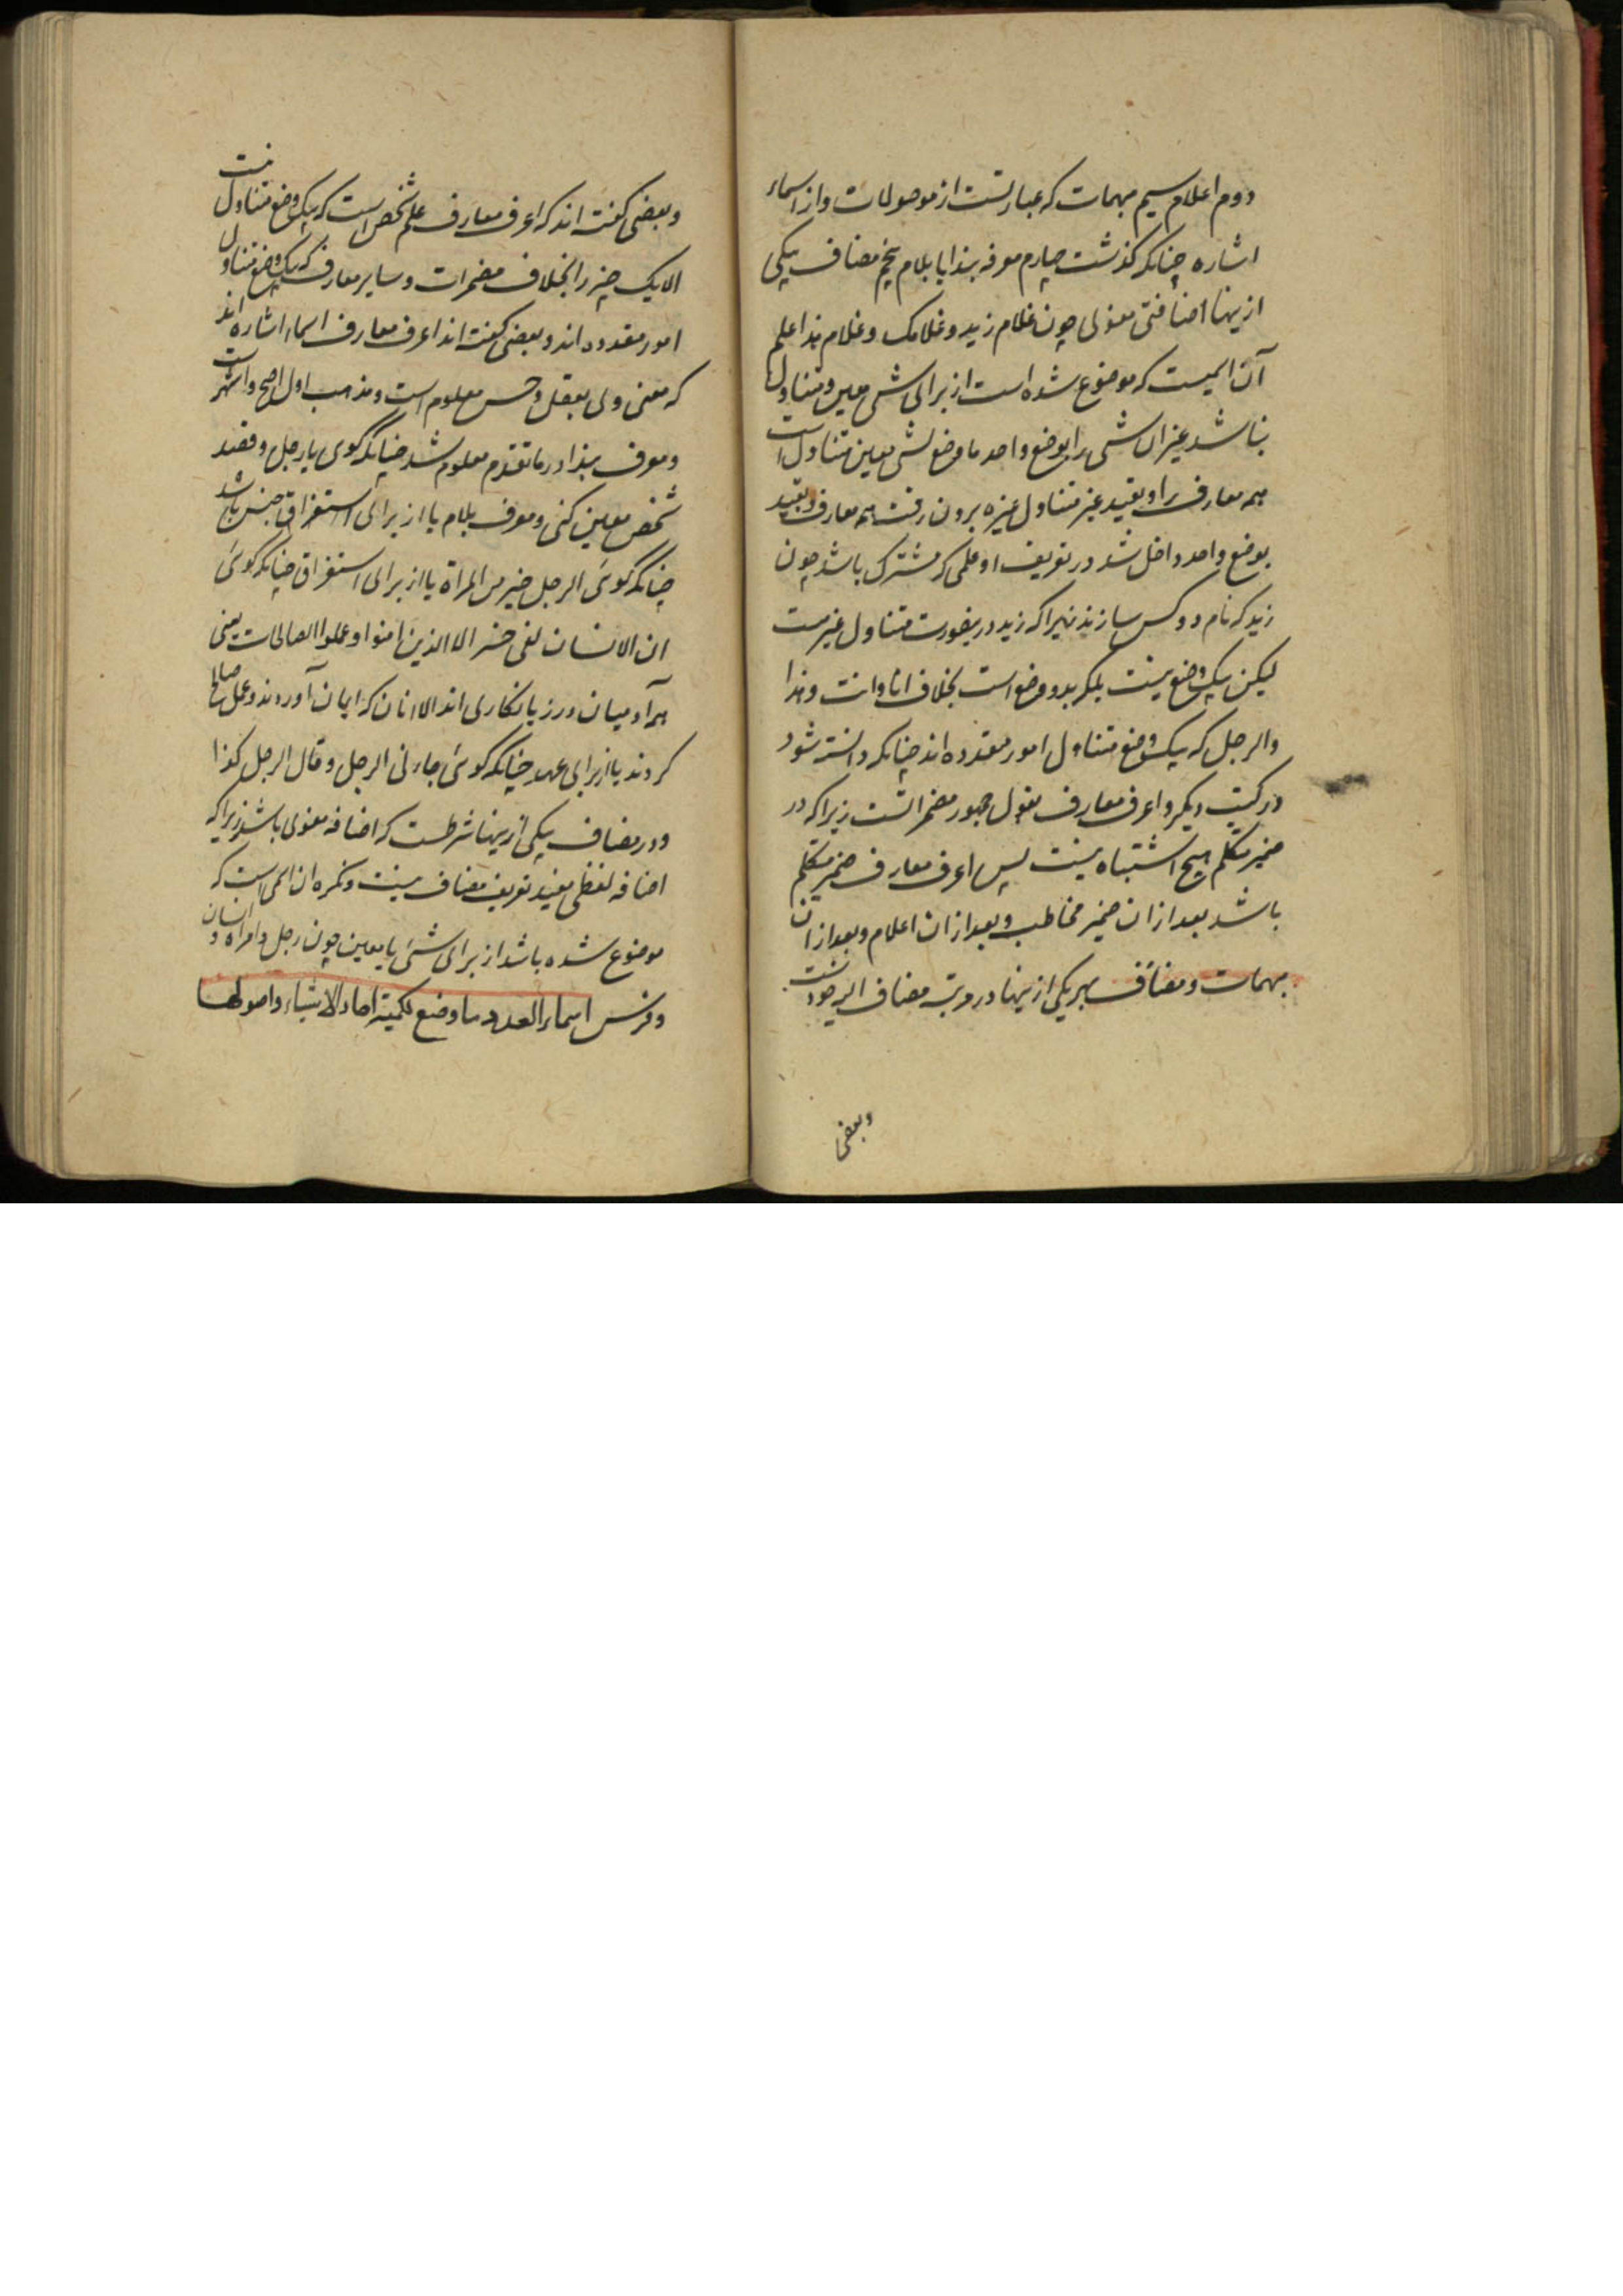 دوم اعلام سیم مبهمات که عبارتست از موصولات و از اسماء
اشاره چنانکه گذشت چهارم معرفه بندا یا بلام پنجم مضاف بیکی
ازینها اضافتی معنوی چون غلام زید و غلامک و غلام هذا علم
آن اسمیست که موضوع شده است از برای شی معین و متناول
نباشد غیر آن شی را بوضع واحد ما وضع لشی معین متناول است
همه معارف را و بقید غیر متناول غیره برون رفت همه معارف و بقید
بوضع واحد داخل شد در تعریف او علمی که مشترک باشد چون
زید که نام دو کس سازند زیرا که زید درینصورت متناول غیر هست
لیکن بیک وضع نیست بلکه بدو وضع است بخلاف انا و انت و هذا
والرجل که بیک وضع متناول امور متعدده اند چنانکه دانسته شود
در کتب دیگر و اعرف معارف بقول جمهور مضمراتست زیرا که در
ضمیر متکلم هیچ اشتباه نیست پس اعرف معارف ضمیر متکلم
باشد بعد از ان ضمیر مخاطب و بعد از ان اعلام و بعد از ان
مبهمات و مضاف بهر یکی ازینها در مرتبه مضاف الیه خودست
وبعضی
وبعضی گفته اند که اعرف معارف علم شخص است که بیک وضع متناول نیست
الا یک چیز را بخلاف مضمرات و سایر معارف که بیک وضع متناول
امور متعدده اند و بعضی گفته اند اعرف معارف اسماء اشاره اند
که معنی وی بعقل و حس معلوم است و مذهب اول اصح و اشهر است
و معرف بندا در ما تقدم معلوم شد چنانکه گوی یا رجل و قصد
شخص معین کنی و معرف بلام یا از برای استغراق جنس باشد
چنانکه گوئی الرجل خیر من المراة یا از برای استغراق چنانکه گوئی
ان الانسان لفی خسر الا الذین امنوا و عملوا الصالحات یعنی
همه آدمیان در زیانکاری اند الا انان که ایمان آوردند و عمل صالح
کردند یا از برای عهد چنانکه گوئی جاءنی الرجل و قال الرجل کذا
و در مضاف بیکی ازینها شرطست که اضافه معنوی باشد زیرا که
اضافه لفظی مفید تعریف مضاف نیست و نکره ان اسمی است که
موضوع شده باشد از برای شئ نا معین چون رجل و امراه و انسان
و فرس اسماء العدد ما وضع لکمیة احاد الاشیاء و اصولها